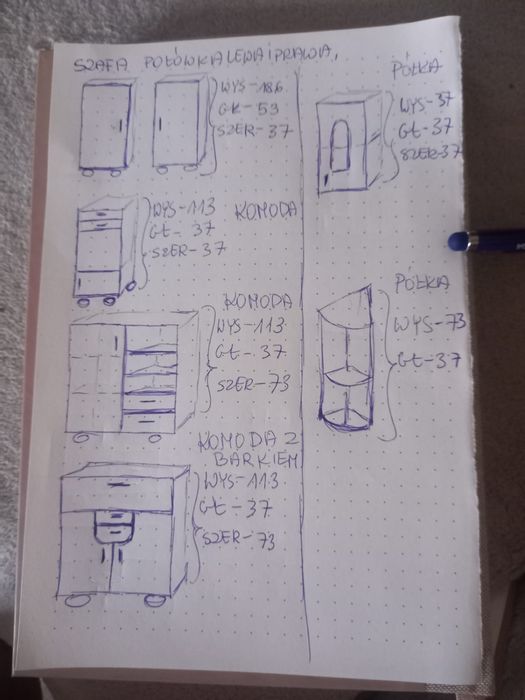 SZAFA POŁÓWKA LEWA i PRAWA,
WYS-186
GŁ-53
SZER-37
WYS-113
GŁ-37
SZER-37
KOMODA
KOMODA
WYS-113
GŁ-37
SZER-73
KOMODA Z
BARKIEM
WYS-113
GŁ-37
SZER-73
PÓŁKA
WYS-37
GŁ-37
SZER-37
PÓŁKA
WYS-73
GŁ-37